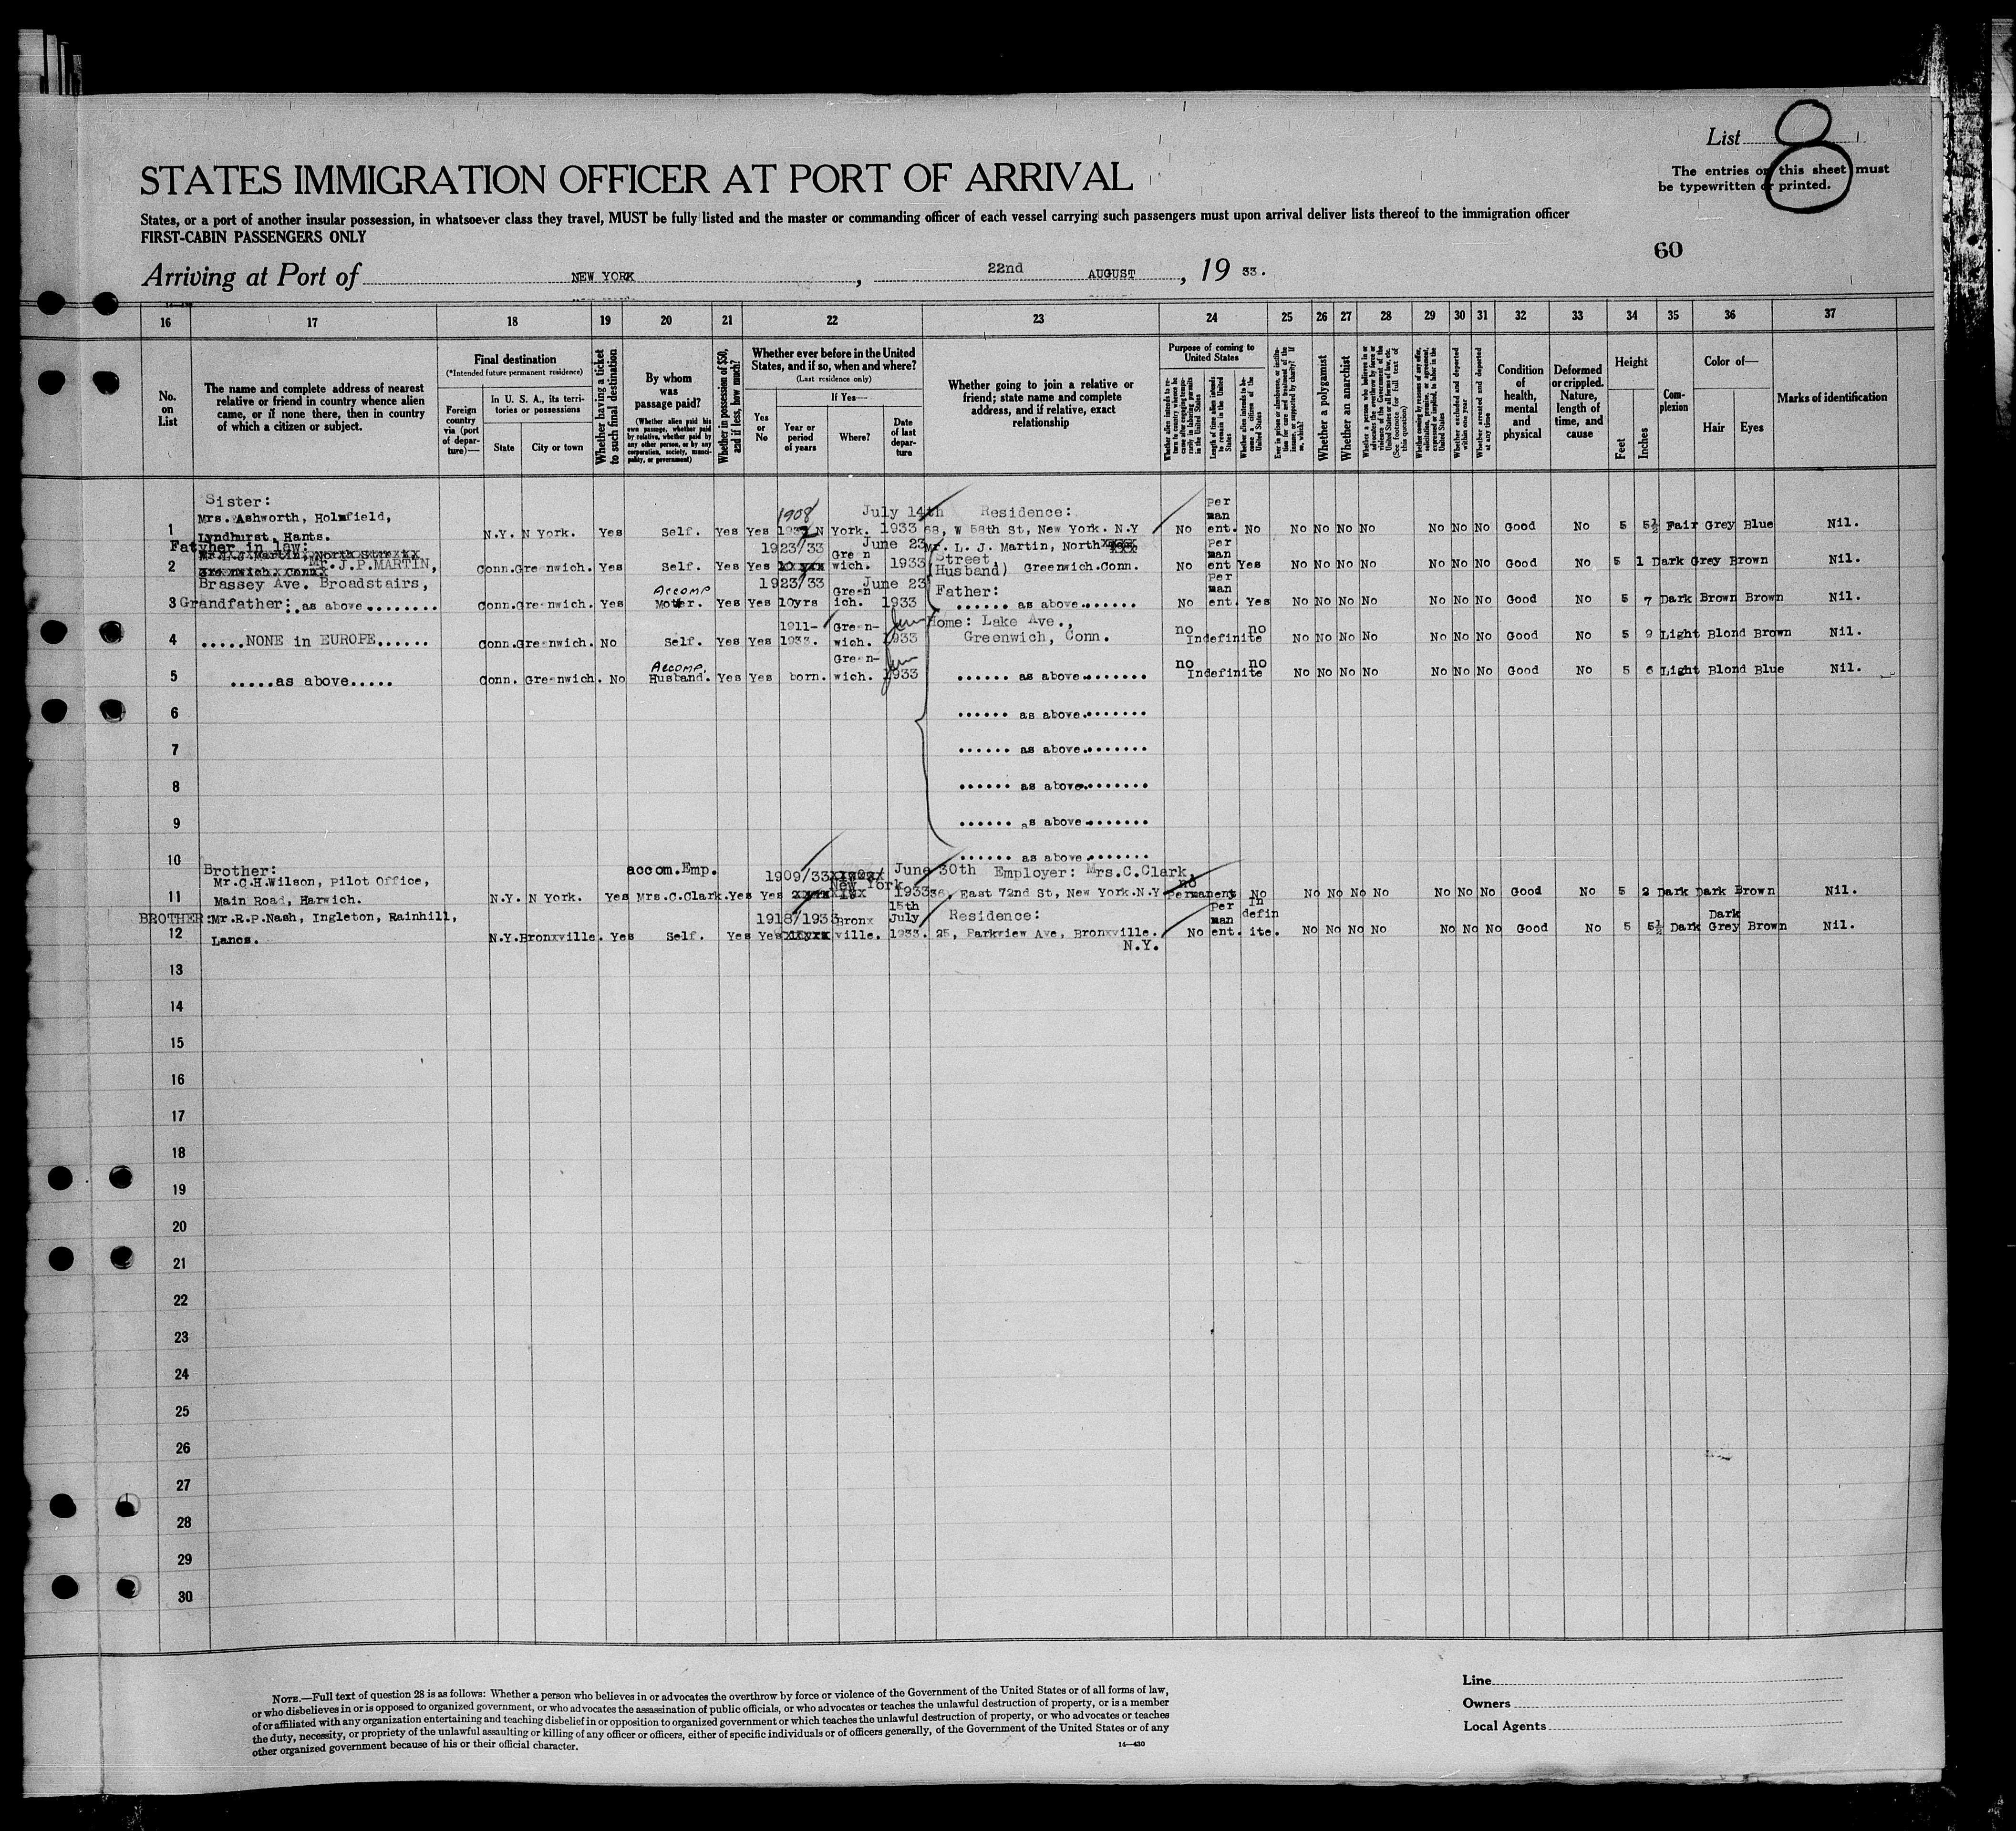 List 8
STATES IMMIGRATION OFFICER AT PORT OF ARRIVAL
The entries on this sheet must
be typewritten or printed.
States, or a port of another insular possession, in whatsoever class they travel, MUST be fully listed and the master or commanding officer of each vessel carrying such passengers must upon arrival deliver lists thereof to the immigration officer
FIRST-CABIN PASSENGERS ONLY
60
Arriving at Port of NEW YORK, 22nd AUGUST, 19 33.
16 17 18 19 20 21 22 23 24 25 26 27 28 29 30 31 32 33 34 35 36 37
No. on List
The name and complete address of nearest relative or friend in country whence alien came, or if none there, then in country of which a citizen or subject.
Final destination
(*Intended future permanent residence)
Foreign country via (port of departure)—
In U. S. A., its territories or possessions
State
City or town
Whether having a ticket to such final destination
By whom was passage paid?
(Whether alien paid his own passage, whether paid by relative, whether paid by any other person, or by any corporation, society, municipality, or government)
Whether in possession of $50, and if less, how much?
Whether ever before in the United States, and if so, when and where?
(Last residence only)
Yes or No
If Yes—
Year or period of years
Where?
Date of last departure
Whether going to join a relative or friend; state name and complete address, and if relative, exact relationship
Purpose of coming to United States
Length of time alien intends to remain in the United States
Whether alien intends to become a citizen of the United States
Whether a polygamist
Whether an anarchist
Whether excluded and deported within one year
Whether arrested and deported at any time
Condition of health, mental and physical
Deformed or crippled. Nature, length of time, and cause
Height
Feet
Inches
Complexion
Color of—
Hair
Eyes
Marks of identification
Sister:
Mrs. Ashworth, Holmfield,
Lyndhurst, Hants.
1 N.Y. N York. Yes Self. Yes Yes 1908 N York. July 14th 1933 Residence: 68, W 58th St, New York. N.Y No Per man ent. No No No No No No No No Good No 5 5½ Fair Grey Blue Nil.
Fatyher in law:
Mr. J.P.MARTIN,
2 Conn. Greenwich. Yes Self. Yes Yes 1923/33 Green wich. June 23 1933 Mr. L. J. Martin, North Street, (Husband) Greenwich.Conn. No Per man ent Yes No No No No No No No Good No 5 1 Dark Grey Brown Nil.
Brassey Ave. Broadstairs,
3 Grandfather: as above........ Conn. Greenwich. Yes Accomp Mother. Yes Yes 1923/33 10yrs Green ich. June 23 1933 Father: ...... as above....... No Per man ent. Yes No No No No No No No Good No 5 7 Dark Brown Brown Nil.
4 .....NONE in EUROPE...... Conn. Greenwich. No Self. Yes Yes 1911-1933. Green-wich. Jun 1933 Home: Lake Ave., Greenwich, Conn. no Indefinite no No No No No No No No Good No 5 9 Light Blond Brown Nil.
5 .....as above..... Conn. Greenwich. No Accomp. Husband. Yes Yes born. Green-wich. Jun 1933 ...... as above........ no Indefinite no No No No No No No No Good No 5 6 Light Blond Blue Nil.
6 ...... as above........
7 ...... as above........
8 ...... as above........
9 ...... as above........
10 ...... as above........
Brother:
Mr.C.H.Wilson, Pilot Office,
11 Main Road, Harwich. N.Y. N York. Yes accom.Emp. Mrs.C.Clark. Yes Yes 1909/33 New York June 30th 1933 Employer: Mrs.C.Clark, 36, East 72nd St, New York.N.Y no Permanent No No No No No No No No Good No 5 2 Dark Dark Brown Nil.
BROTHER: Mr.R.P.Nash, Ingleton, Rainhill,
12 Lancs. N.Y. Bronxville. Yes Self. Yes Yes 1918/1933 Bronx ville. 15th July 1933. Residence: 25, Parkview Ave, Bronxville. N.Y. No Per man ent. In defin ite. No No No No No No No Good No 5 5½ Dark Dark Grey Brown Nil.
13
14
15
16
17
18
19
20
21
22
23
24
25
26
27
28
29
30
NOTE.—Full text of question 28 is as follows: Whether a person who believes in or advocates the overthrow by force or violence of the Government of the United States or of all forms of law,
or who disbelieves in or is opposed to organized government, or who advocates the assassination of public officials, or who advocates or teaches the unlawful destruction of property, or is a member
of or affiliated with any organization entertaining and teaching disbelief in or opposition to organized government or which teaches the unlawful destruction of property, or who advocates or teaches
the duty, necessity, or propriety of the unlawful assaulting or killing of any officer or officers, either of specific individuals or of officers generally, of the Government of the United States or of any
other organized government because of his or their official character.
14—430
Line
Owners
Local Agents